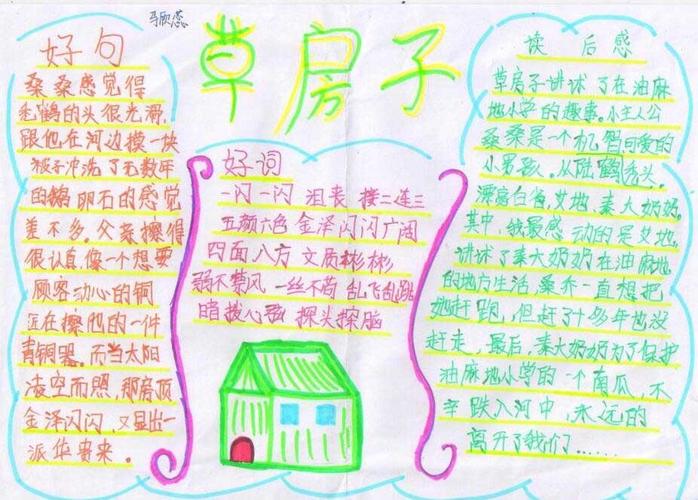 马欣蕊
草房子
好句
桑桑感觉得
秃鹤的头很光滑,
跟他在河边摸一块
被子冲洗了无数年
的鹅卵石的感觉
差不多。父亲擦得
很认真,像一个想要
顾客动心的铜
匠在擦他的一件
青铜器。而当太阳
凌空而照,那房顶
金泽闪闪,又显出一
派华贵来。
好词
一闪一闪 沮丧 接二连三
五颜六色 金泽闪闪 广阔
四面八方 文质彬彬
弱不禁风 一丝不苟 乱飞乱跳
探头探脑
读后感
草房子讲述了在油麻
地小学的趣事。小主人公
桑桑是一个机智可爱的
小男孩。从陆鹤秃头.
漂亮白雀,艾地,秦大奶奶.
其中,我最感动的是艾地,
讲述了秦大奶奶在油麻地
的地方生活,桑乔一直想把
她赶跑,但赶了十多年也没
赶走,最后,秦大奶奶为了保护
油麻地小学的一个南瓜,不
幸跌入河中,永远的
离开了我们……